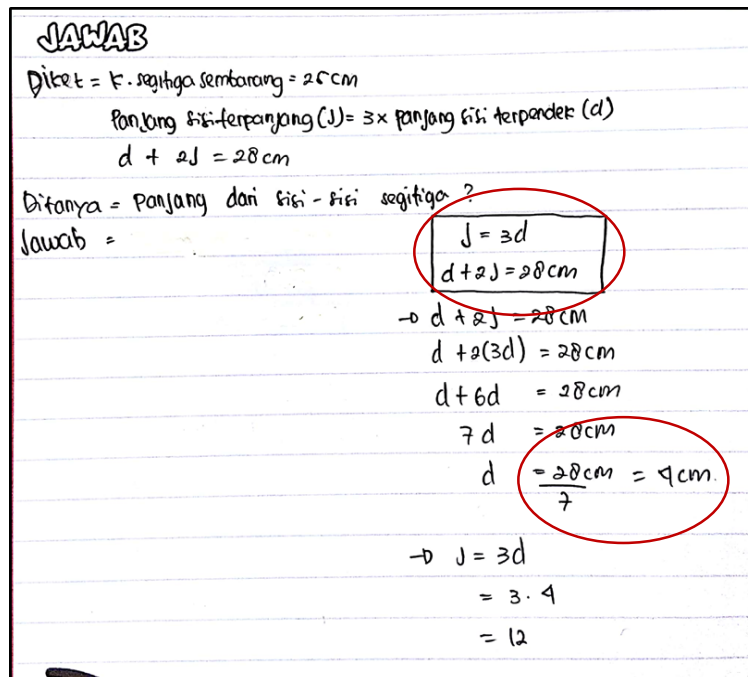 JAWAB
Diket = K. segitiga sembarang = 25 cm
Panjang sisi terpanjang (J) = 3x panjang sisi terpendek (d)
d + 2J = 28 cm
Ditanya = Panjang dari sisi-sisi segitiga ?
Jawab =
J = 3d
d+2J = 28cm
→ d + 2J = 28cm
d + 2(3d) = 28cm
d + 6d = 28cm
7d = 28cm
d = 28cm/7 = 4cm.
→ J = 3d
= 3 . 4
= 12